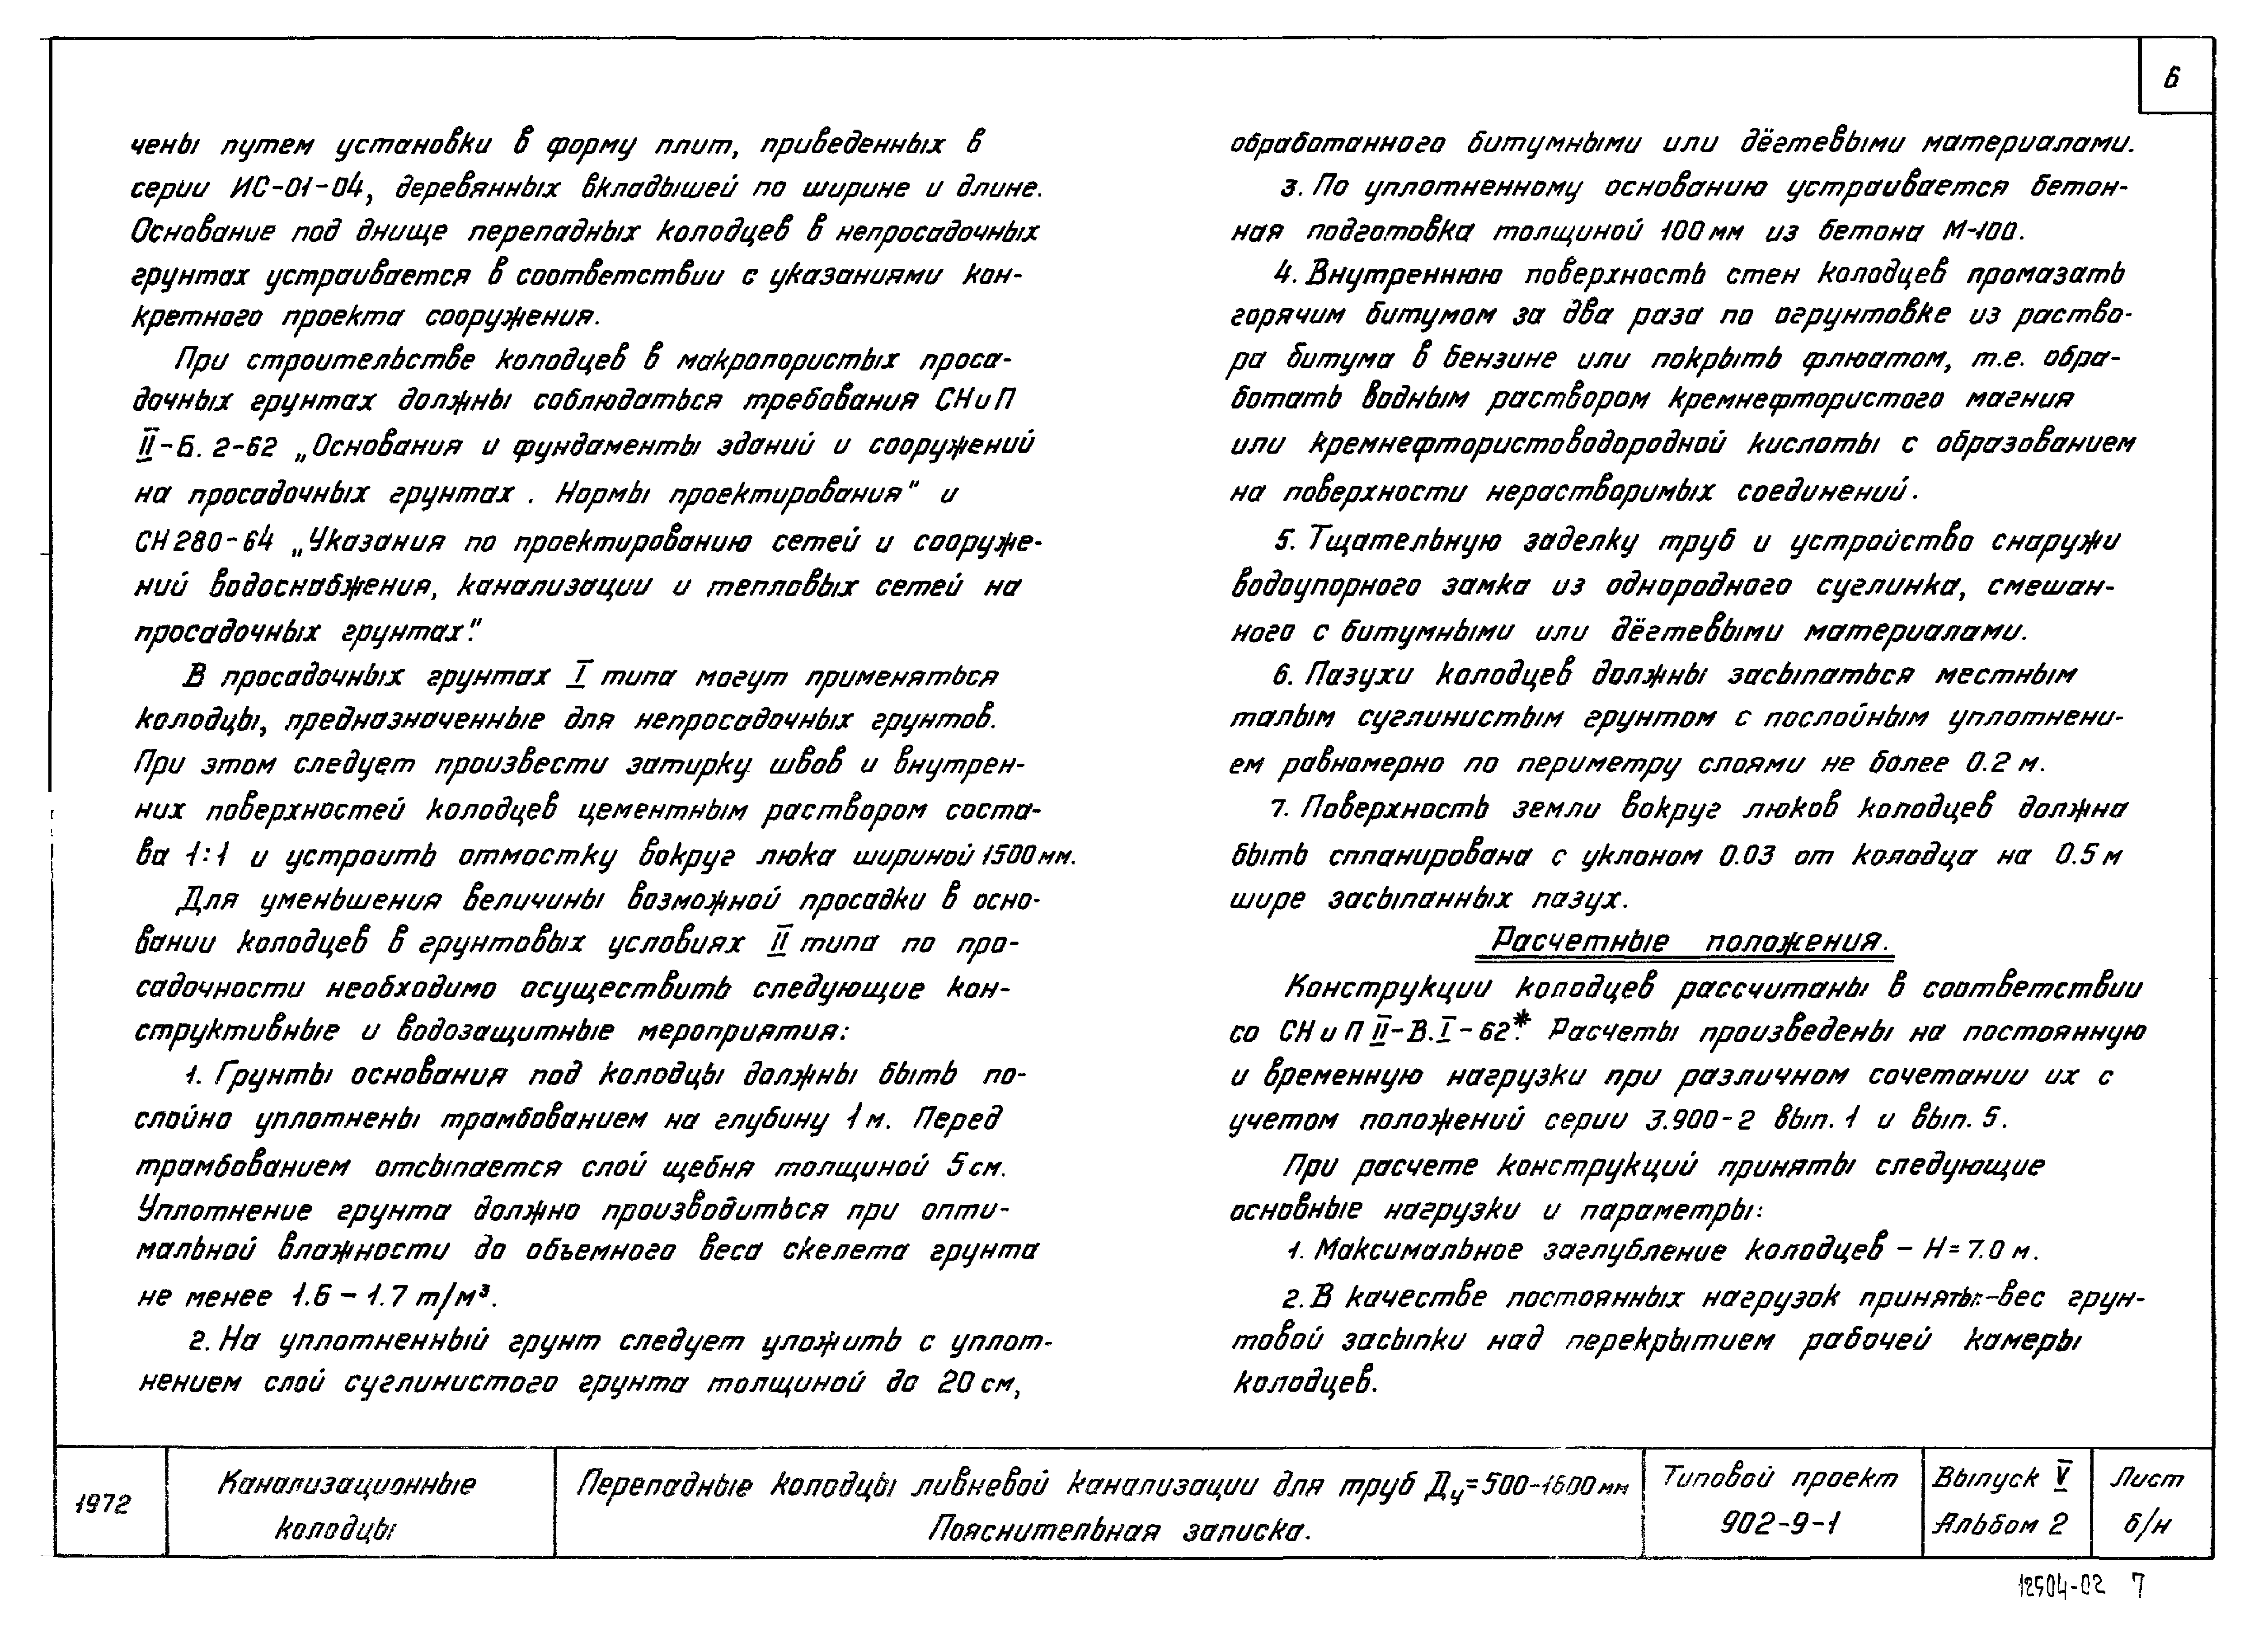 6
чены путем установки в форму плит, приведенных в
серии ИС-01-04, деревянных вкладышей по ширине и длине.
Основание под днище перепадных колодцев в непросадочных
грунтах устраивается в соответствии с указаниями кон-
кретного проекта сооружения.
При строительстве колодцев в макропористых проса-
дочных грунтах должны соблюдаться требования СНиП
II-Б. 2-62 „Основания и фундаменты зданий и сооружений
на просадочных грунтах. Нормы проектирования" и
СН 280-64 „Указания по проектированию сетей и сооруже-
ний водоснабжения, канализации и тепловых сетей на
просадочных грунтах".
В просадочных грунтах I типа могут применяться
колодцы, предназначенные для непросадочных грунтов.
При этом следует произвести затирку швов и внутрен-
них поверхностей колодцев цементным раствором соста-
ва 1:1 и устроить отмостку вокруг люка шириной 1500 мм.
Для уменьшения величины возможной просадки в осно-
вании колодцев в грунтовых условиях II типа по про-
садочности необходимо осуществить следующие кон-
структивные и водозащитные мероприятия:
1. Грунты основания под колодцы должны быть по-
слойно уплотнены трамбованием на глубину 1 м. Перед
трамбованием отсыпается слой щебня толщиной 5 см.
Уплотнение грунта должно производиться при опти-
мальной влажности до объемного веса скелета грунта
не менее 1.6 - 1.7 т/м³.
2. На уплотненный грунт следует уложить с уплот-
нением слой суглинистого грунта толщиной до 20 см,
обработанного битумными или дёгтевыми материалами.
3. По уплотненному основанию устраивается бетон-
ная подготовка толщиной 100 мм из бетона М-100.
4. Внутреннюю поверхность стен колодцев промазать
горячим битумом за два раза по огрунтовке из раство-
ра битума в бензине или покрыть флюатом, т.е. обра-
ботать водным раствором кремнефтористого магния
или кремнефтористоводородной кислоты с образованием
на поверхности нерастворимых соединений.
5. Тщательную заделку труб и устройство снаружи
водоупорного замка из однородного суглинка, смешан-
ного с битумными или дёгтевыми материалами.
6. Пазухи колодцев должны засыпаться местным
талым суглинистым грунтом с послойным уплотнени-
ем равномерно по периметру слоями не более 0.2 м.
7. Поверхность земли вокруг люков колодцев должна
быть спланирована с уклоном 0.03 от колодца на 0.5 м
шире засыпанных пазух.
Расчетные положения.
Конструкции колодцев рассчитаны в соответствии
со СНиП II-В.I-62*. Расчеты произведены на постоянную
и временную нагрузки при различном сочетании их с
учетом положений серии 3.900-2 вып. 1 и вып. 5.
При расчете конструкций приняты следующие
основные нагрузки и параметры:
1. Максимальное заглубление колодцев - Н = 7.0 м.
2. В качестве постоянных нагрузок приняты:-вес грун-
товой засыпки над перекрытием рабочей камеры
колодцев.
1972
Канализационные
колодцы
Перепадные колодцы ливневой канализации для труб Ду=500-1600 мм
Пояснительная записка.
Типовой проект
902-9-1
Выпуск V
Альбом 2
Лист
б/н
12504-02 7